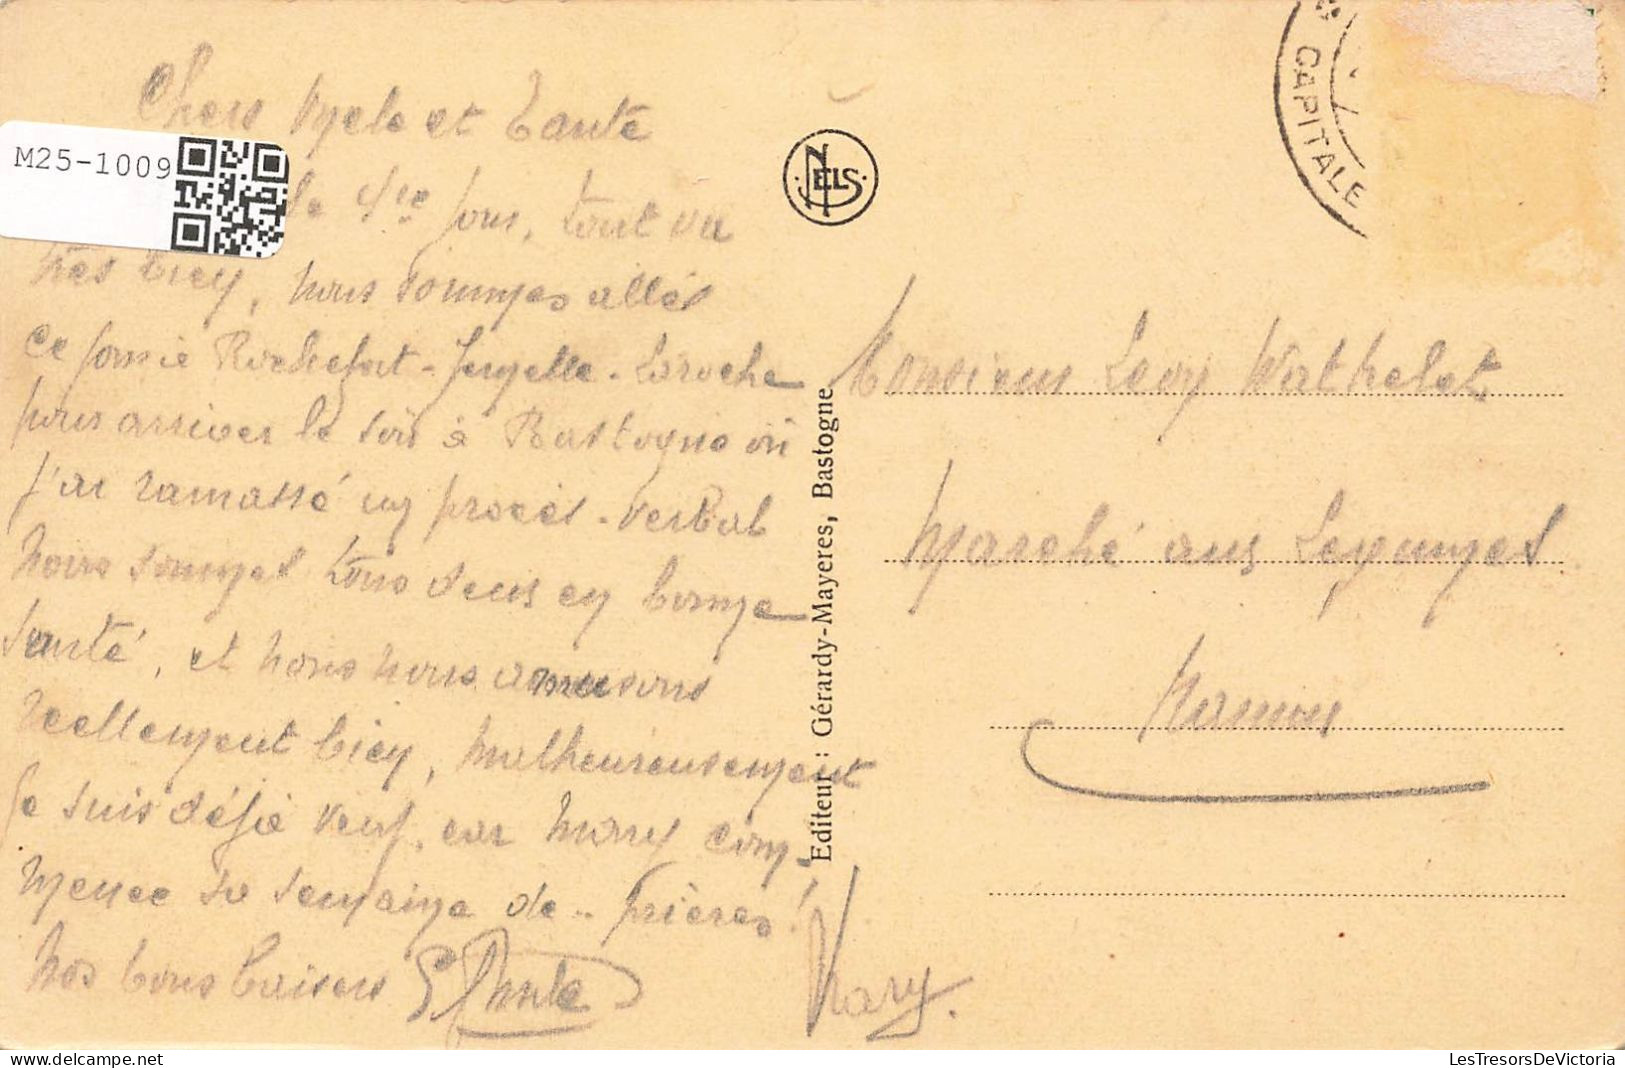 Chers Oncle et Tante
M25-1009
le 4me jour, tout va
très bien, nous sommes allés
ce jour ie Rochefort - Jemelle - Laroche
pour arriver le soir à Bastogne où
j'ai ramassé un procès-verbal
Nous sommes tous deux en bonne
santé, et nous nous amusons
reellement bien, malheureusement
je suis déjà veuf, car Mary com-
mence sa semaine de.. prières!
Nos bons baisers
Mary.
NELS
CAPITALE
Editeur : Gérardy-Mayeres, Bastogne
Monsieur Léon Wathelet
Marché aux Légumes
Namur
LesTresorsDeVictoria